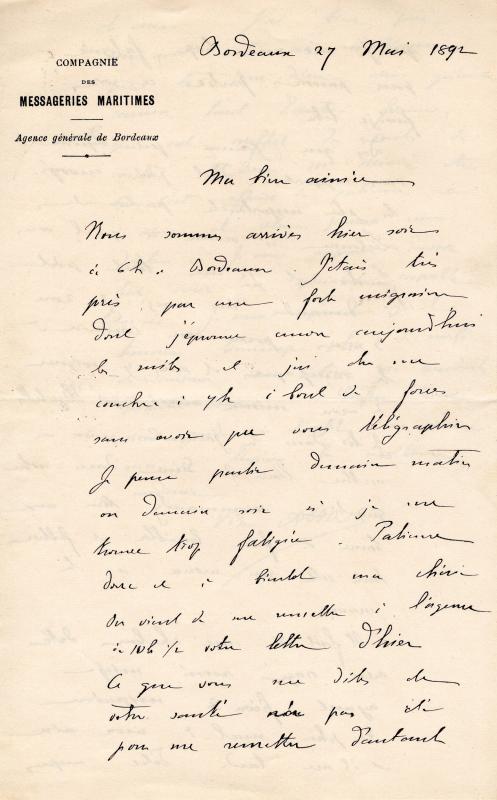 Bordeaux 27 Mai 1892
COMPAGNIE
DES
MESSAGERIES MARITIMES
Agence générale de Bordeaux
Ma bien aimée
Nous sommes arrivés hier soir
à 6h à Bordeaux. J'étais très
pris par une forte migraine
dont j'éprouve encore aujourd'hui
les suites et j'ai du me
coucher à 7h à bout de forces
sans avoir pu vous télégraphier
Je pense partir demain matin
ou demain soir si je me
trouve trop fatigué. Patience
donc et à bientot ma chérie
On vient de me remettre à l'agence
à 10h 1/2 votre lettre d'hier
Ce que vous me dites de
votre santé n'a pas été
pour me remettre d'autant